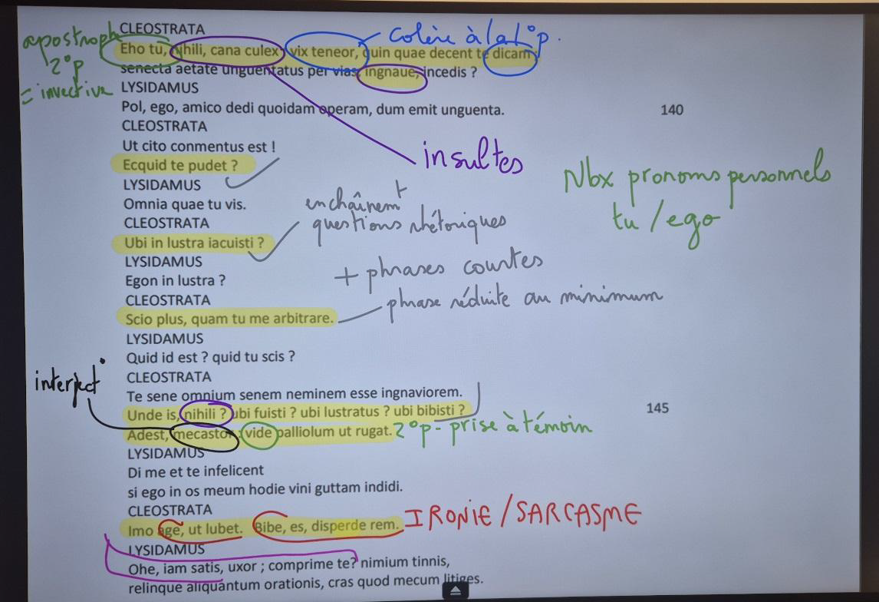 CLEOSTRATA
apostroph
2°p
= invective
Colère à la 1°p.
Eho tu, nihili, cana culex, vix teneor, quin quae decent te dicam,
senecta aetate unguentatus per vias, ingnaue, incedis ?
LYSIDAMUS
Pol, ego, amico dedi quoidam operam, dum emit unguenta.
140
CLEOSTRATA
Ut cito conmentus est !
insultes
Ecquid te pudet ?
Nbx pronoms personnels
tu / ego
LYSIDAMUS
Omnia quae tu vis.
enchaînemt
questions rhétoriques
CLEOSTRATA
Ubi in lustra iacuisti ?
LYSIDAMUS
+ phrases courtes
Egon in lustra ?
CLEOSTRATA
phrase réduite au minimum
Scio plus, quam tu me arbitrare.
LYSIDAMUS
Quid id est ? quid tu scis ?
CLEOSTRATA
interject°
Te sene omnium senem neminem esse ingnaviorem.
Unde is, nihili ? ubi fuisti ? ubi lustratus ? ubi bibisti ?
145
Adest, mecastor : vide palliolum ut rugat.
2°p - prise à témoin
LYSIDAMUS
Di me et te infelicent
si ego in os meum hodie vini guttam indidi.
CLEOSTRATA
Imo age, ut lubet. Bibe, es, disperde rem.
IRONIE / SARCASME
LYSIDAMUS
Ohe, iam satis, uxor ; comprime te? nimium tinnis,
relinque aliquantum orationis, cras quod mecum litiges.